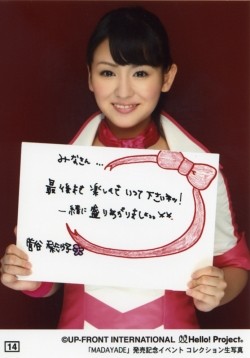 みなさん...
最後まで楽しんでいって下さいね!
一緒に盛りあがりましょう××
14
©UP-FRONT INTERNATIONAL Hello! Project
「MADAYADE」発売記念イベント コレクション生写真